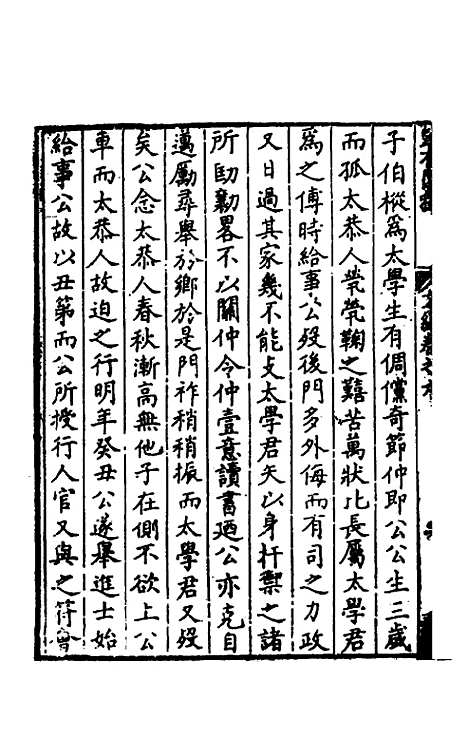 子伯樅爲太學生有倜儻奇節仲即公公生三歲
而孤太恭人煢煢鞠之囏苦萬狀比長屬太學君
爲之傅時給事公歿後門多外侮而有司之力政
又日過其家幾不能支太學君矢以身扞禦之諸
所劻勷畧不以關仲令仲壹意讀書迺公亦克自
邁勵尋舉於鄉於是門祚稍稍振而太學君又歿
矣公念太恭人春秋漸高無他子在側不欲上公
車而太恭人故迫之行明年癸丑公遂舉進士始
給事公故以丑第而公所授行人官又與之符會